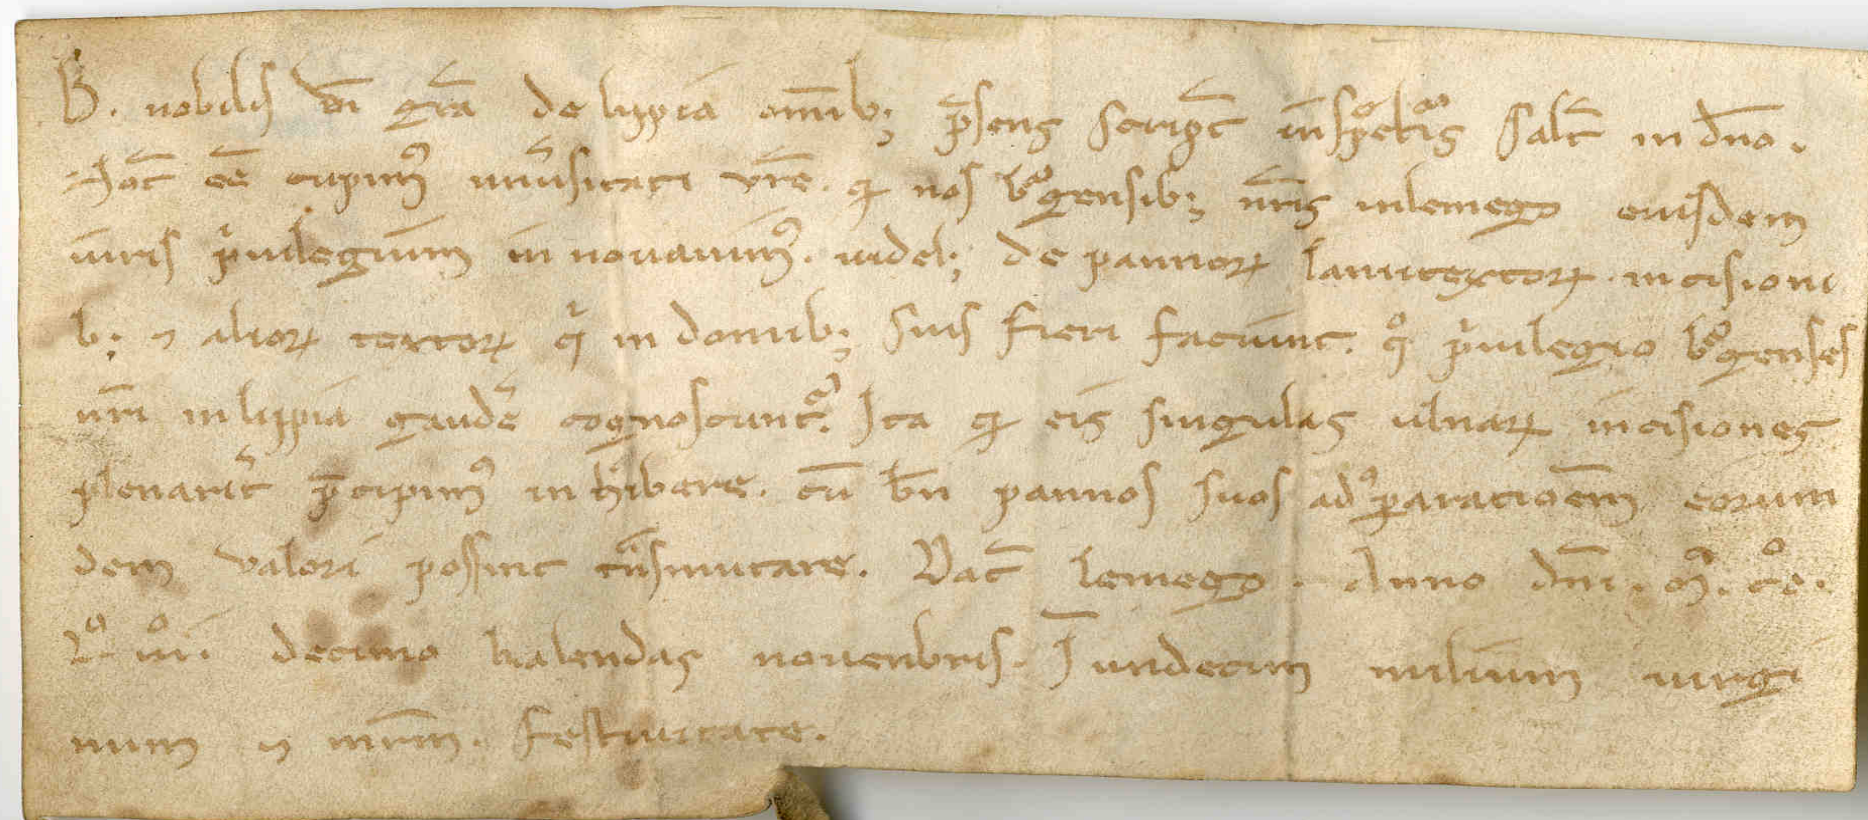 B. nobilis di gr̄a de lippia om̄ib; p̄sens script̄ inspecturis salt̄ in dn̄o.
Not̄ ēe cupim⁹ uniu͛sitati vr̄e. qd nos burgensib; nr̄is in lemego eiusdem
iuris pͥuilegium in nouauim⁹. videl; de pannoꝝ lanutextoꝝ. incisioni
b; ⁊ alioꝝ textoꝝ q̄ in domib; suis fieri faciunt. qͦ pͥuilegio bͦgenses
nr̄i in lippia gaude͛ cognoscunt᷑. Ita qd eis singulas ulnaꝝ incisiones
plenarit͛ p̄cipim⁹ inhibere. cū bn̄ pannos suos ad ꝯparatiōem eorum
dem valori possint tͣnsmutare. Dat̄ lemego. Anno dn̄i. mͦ. ccͦ.
Lͦ iiiiͦ. decimo kalendas nouenbris. I undecim milium uirgi
num ⁊ mr̄m. festiuitate.